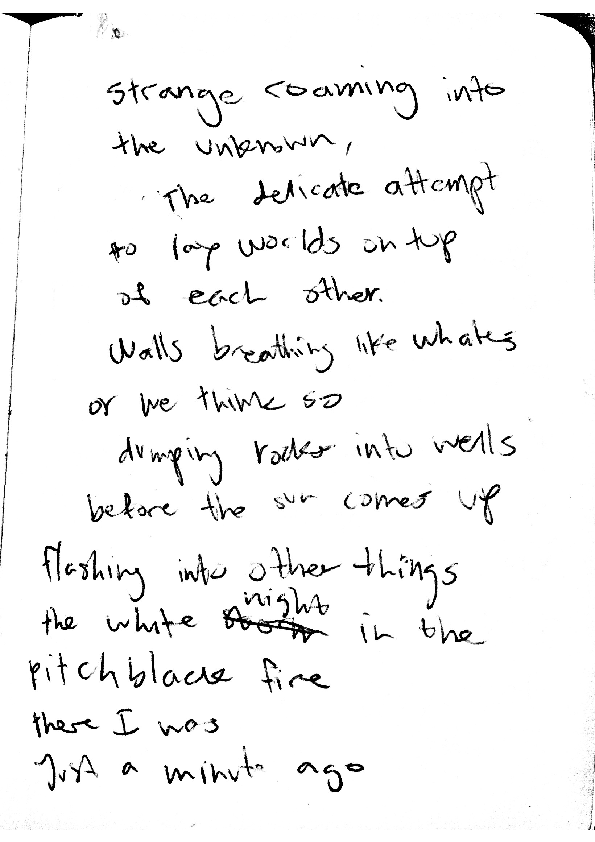 strange roaming into
the unknown,
The delicate attempt
to lay worlds on top
of each other.
Walls breathing like whales
or we think so
dumping rocks into wells
before the sun comes up
flashing into other things
the white night in the
pitchblack fire
there I was
Just a minute ago